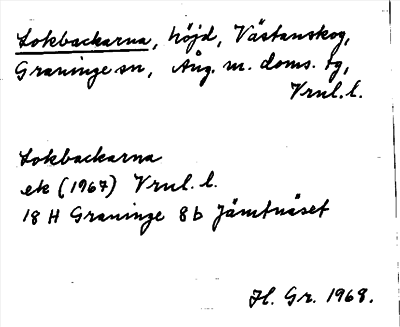 Lokbackarna, höjd, Västanskog,
Graninge sn, Ång. m. doms. tg,
Vrnl. l.
Lokbackarna
ek (1967) Vrnl. l.
18 H Graninge 8 b Jämtnäset
H. Gr. 1968.